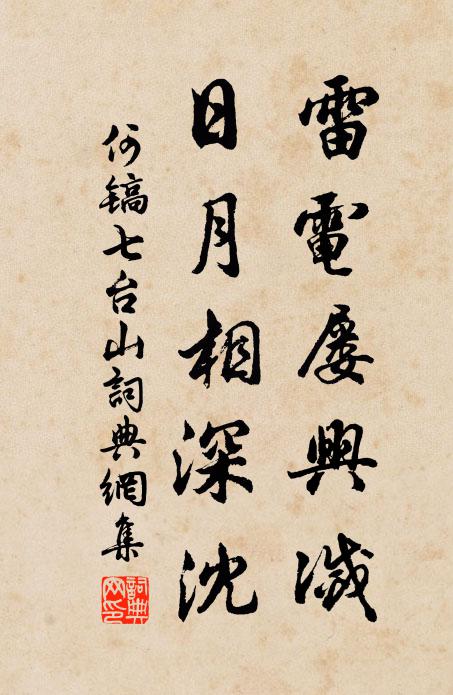 雷電屡興滅
日月相深沈
何镐七台山詞典網集
詞典网印